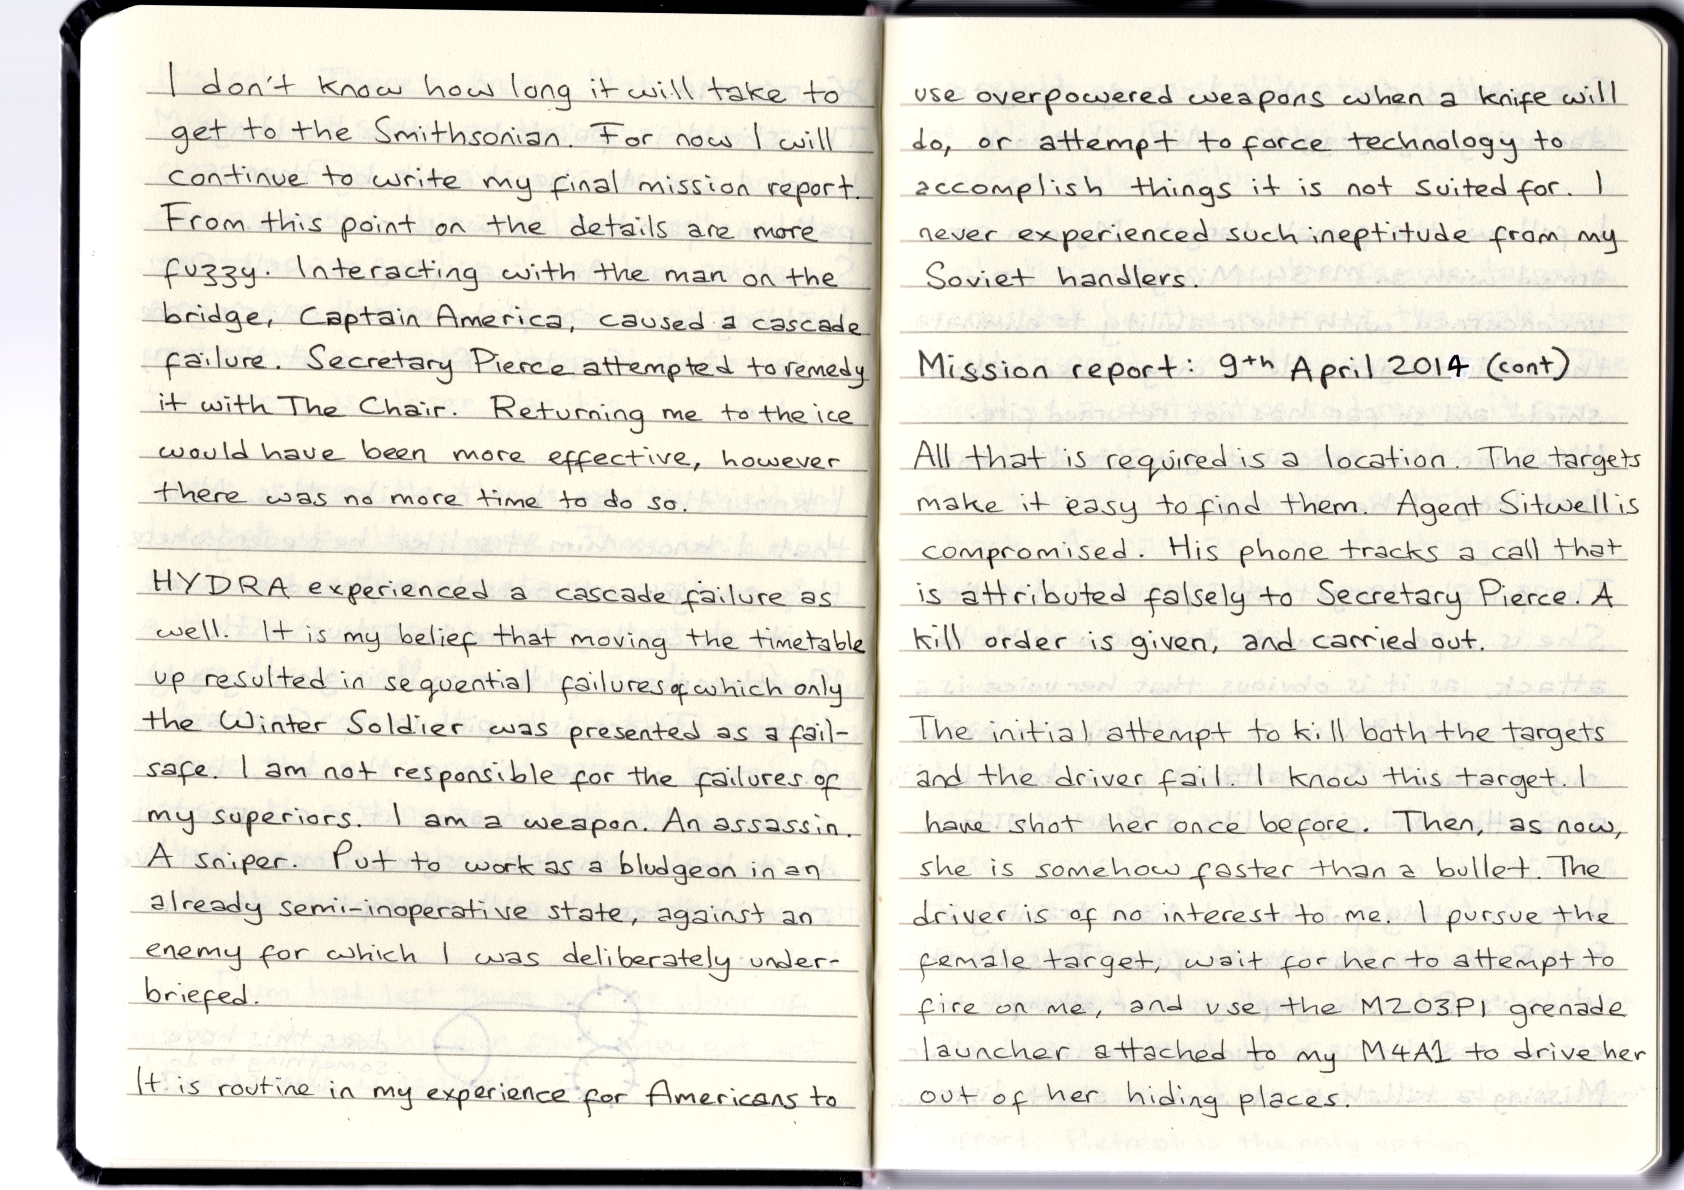 I don't know how long it will take to
get to the Smithsonian. For now I will
continue to write my final mission report.
From this point on the details are more
fuzzy. Interacting with the man on the
bridge, Captain America, caused a cascade
failure. Secretary Pierce attempted to remedy
it with The Chair. Returning me to the ice
would have been more effective, however
there was no more time to do so.
HYDRA experienced a cascade failure as
well. It is my belief that moving the timetable
up resulted in sequential failures of which only
the Winter Soldier was presented as a fail-
safe. I am not responsible for the failures of
my superiors. I am a weapon. An assassin.
A sniper. Put to work as a bludgeon in an
already semi-inoperative state, against an
enemy for which I was deliberately under-
briefed.
It is routine in my experience for Americans to
use overpowered weapons when a knife will
do, or attempt to force technology to
accomplish things it is not suited for. I
never experienced such ineptitude from my
Soviet handlers.
Mission report: 9th April 2014 (cont)
All that is required is a location. The targets
make it easy to find them. Agent Sitwell is
compromised. His phone tracks a call that
is attributed falsely to Secretary Pierce. A
kill order is given, and carried out.
The initial attempt to kill both the targets
and the driver fail. I know this target. I
have shot her once before. Then, as now,
she is somehow faster than a bullet. The
driver is of no interest to me. I pursue the
female target, wait for her to attempt to
fire on me, and use the M203P1 grenade
launcher attached to my M4A1 to drive her
out of her hiding places.